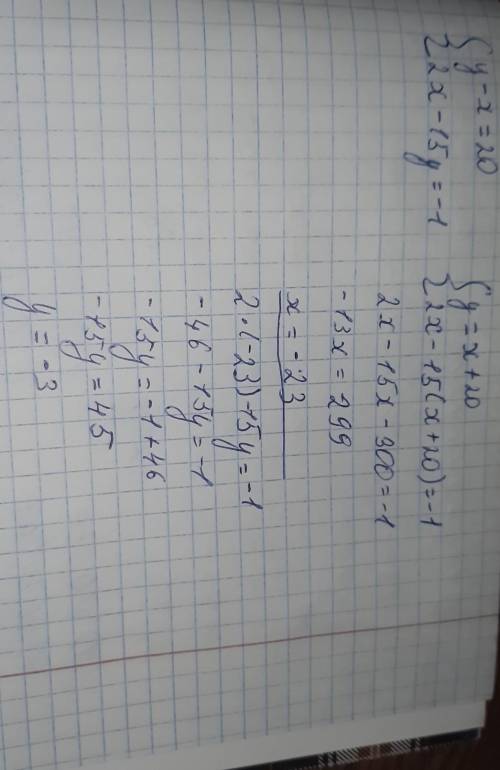 { y - x = 20
{ 2x - 15y = -1
{ y = x + 20
{ 2x - 15(x + 20) = -1
2x - 15x - 300 = -1
-13x = 299
x = -23
2·(-23) 15y = -1
-46 - 15y = -1
-15y = -1 + 46
-15y = 45
y = -3